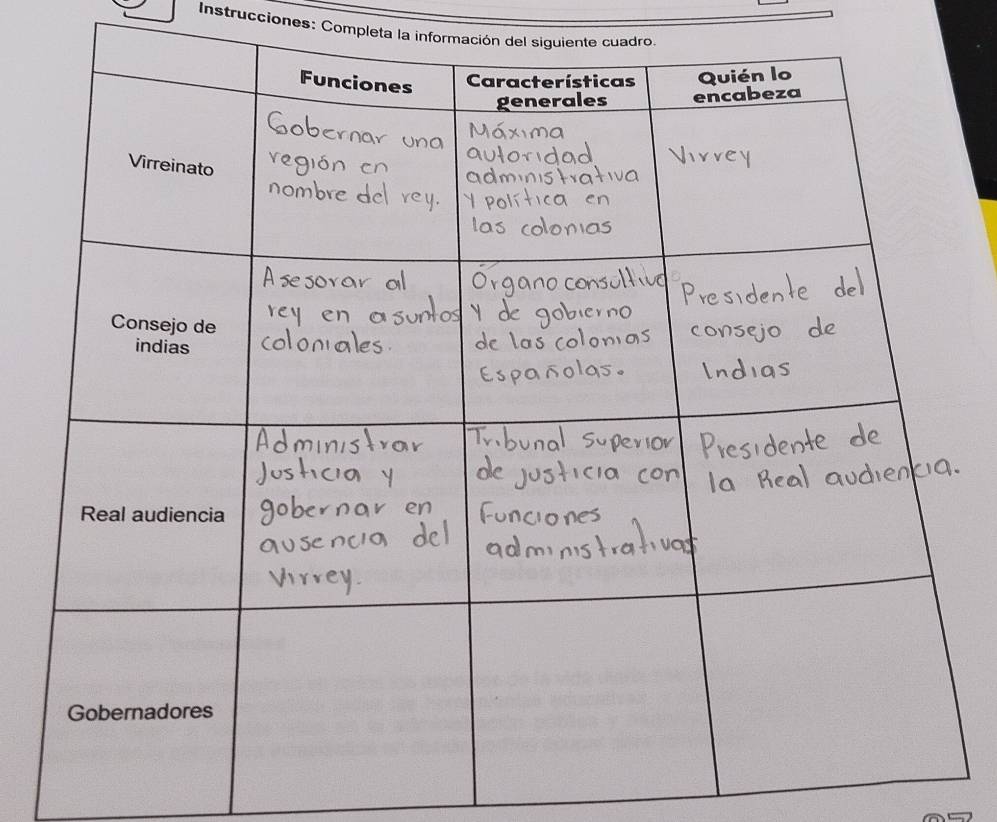 Instrucciones: Completa la información del siguiente cuadro.
Funciones
Características generales
Quién lo encabeza
Virreinato
Gobernar una
región en
nombre del rey.
Máxima
autoridad
administrativa
y política en
las colonias
Virrey
Consejo de
indias
Asesorar al
rey en asuntos
coloniales.
Órgano consultivo
y de gobierno
de las colonias
Españolas.
Presidente del
consejo de
Indias
Real audiencia
Administrar
Justicia y
gobernar en
ausencia del
Virrey.
Tribunal superior
de justicia con
Funciones
administrativas
Presidente de
la Real audiencia.
Gobernadores